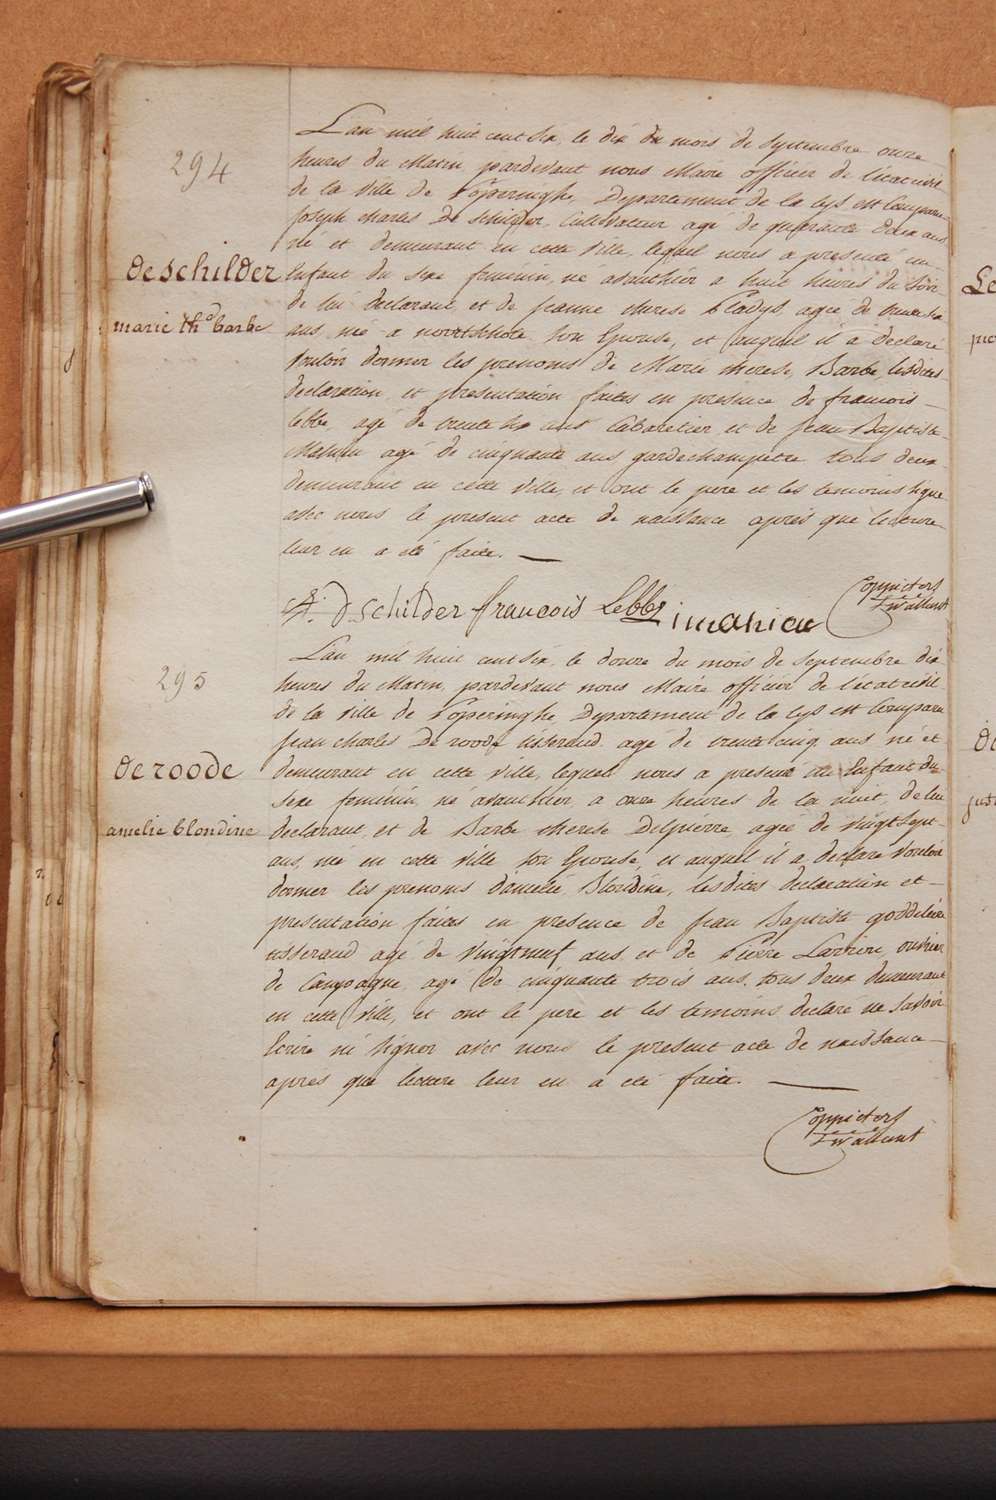 294
L'an mil huit cent six, le dix du mois de Septembre onze
heures du Matin, pardevant nous Maire officier de l'etat civil
de la ville de Poperinghe, Departement de la Lys est Comparu
Joseph Charles De Schilder, Cultivateur agé de quarante deux ans
né et demeurant en cette ville, lequel nous a presenté un
deschilder
Enfant du sexe feminin, né avanthier a huit heures du Soir
de lui declarant et de Jeanne therese Pladys, agée de trente
marie thse barbe
ans, née a son Epouse, et auquel il a declaré
vouloir donner les prenoms de Marie therese, Barbe, lesdites
declaration, et presentation faites en presence de francois
Lebbe, agé de trente six ans Cabaretier, et de Jean Baptiste
Mahieu agé de cinquante ans gardechampetre tous deux
demeurant en cette ville, et ont le pere et les temoins signé
avec nous le present acte de naissance après que lecture
leur en a été faite.
D Schilder francois Lebbe i mahieu
295
L'an mil huit cent six, le douze du mois de Septembre dix
heures du Matin, pardevant nous Maire officier de l'etat civil
de la ville de Poperinghe, Departement de la Lys est Comparu
Jean Charles De roode tisserand agé de trente cinq ans né et
deroode
demeurant en cette ville, lequel nous a presenté un Enfant du
Sexe feminin, né avanthier a onze heures de la nuit, de lui
amelie blondine
declarant, et de Barbe therese Delpierre, agée de vingt sept
ans, née en cette ville son Epouse, et auquel il a declaré vouloir
donner les prenoms d'amelie Blondine, lesdites declaration et
presentation faites en presence de Jean Baptiste
tisserand agé de vingt neuf ans et de Pierre ouvrier
de Campagne, agé de cinquante trois ans, tous deux demeurant
en cette ville, et ont le pere et les temoins declaré ne Savoir
Ecrire ni signer avec nous le present acte de naissance
après que lecture leur en a été faite.